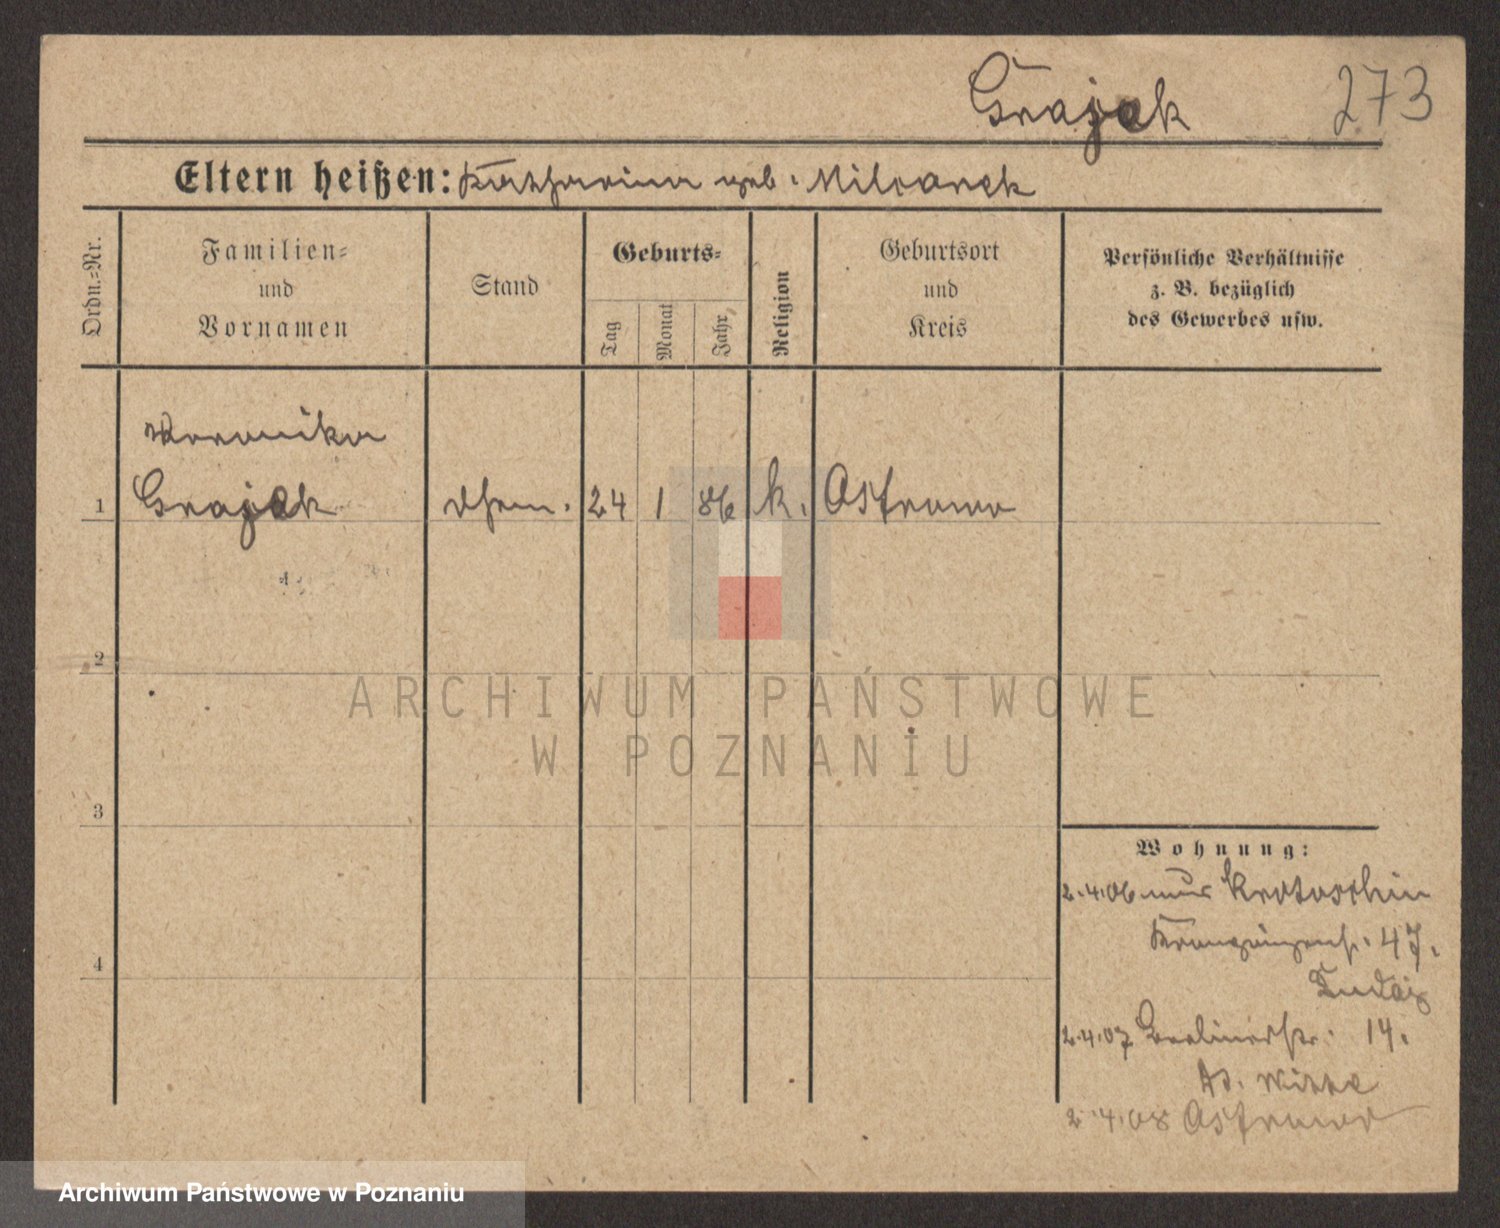 Grajek 273
Eltern heißen: Katharina geb. Milcarek
Ordn.-Nr.
Familien-
und
Vornamen
Stand
Geburts-
Tag
Monat
Jahr
Religion
Geburtsort
und
Kreis
Persönliche Verhältnisse
z. B. bezüglich
des Gewerbes usw.
Veronika
1 Grajek 24 1 86 k. Ostrowo
2
ARCHIWUM PAŃSTWOWE
W POZNANIU
3
Wohnung:
2.4.06 Krotoschin
47.
4
2.4.07 Berlinerstr. 14.
Witte
2.4.08 Ostrowo
Archiwum Państwowe w Poznaniu